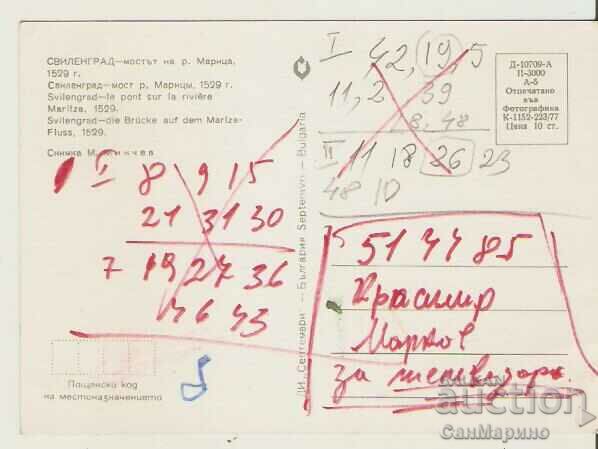 СВИЛЕНГРАД—мостът на р. Марица,
1529 г.
Свиленград—мост р. Марицы, 1529 г.
Svilengrad—le pont sur la rivière
Maritza, 1529.
Svilengrad—die Brücke auf dem Mariza-
Fluss, 1529.
Снимка М.
I 8 9 15
21 31 30
7 19 27 36
46 43
Пощенски код
на местоназначението
ДИ „Септември" — България Septemvri — Bulgaria
I 42, 19, 5
11, 2 39
8, 48
II 11 18 26 23
48 10
Д-10709-А
П-3000
А-5
Отпечатано
във
Фотографика
К-1152-223/77
Цена 10 ст.
51 44 85
Красимир
Марков
за телевизора.
BALKAN
auction
СанМарино